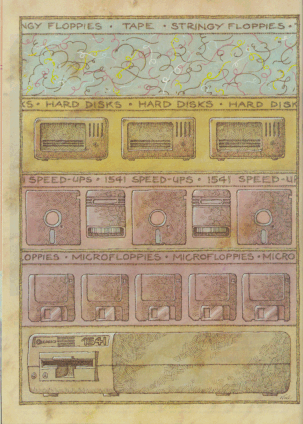 GY FLOPPIES • TAPE • STRINGY FLOPPIES •
KS • HARD DISKS • HARD DISKS • HARD DISK
SPEED-UPS • 1541 SPEED-UPS • 1541 SPEED-U
OPPIES • MICROFLOPPIES • MICROFLOPPIES • MICRO
1541